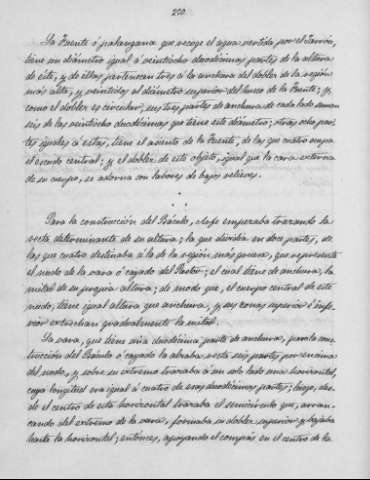 200
La Fuente ó palangana que recoge el agua vertida por el Jarrón,
tiene un diámetro igual á veintiocho duodécimas partes de la altura
de éste, y de ellas pertenecen tres á la anchura del doblez de la región
más alta, y veintidos al diámetro superior del hueco de la Fuente; y,
como el doblez es circular, sus tres partes de anchura de cada lado suman
seis de las veintiocho duodécimas que tiene este diámetro; otras ocho par-
tes, iguales á estas, tiene el asiento de la Fuente, de las que cuatro ocupa
el escudo central; y el doblez de este objeto, igual que la cara externa
de su cuerpo, se adorna con labores de bajos relieves.
Para la construcción del Báculo, Arfe empezaba trazando la
recta determinante de su altura; la que dividia en doce partes, de
las que cuatro destinaba á la de la región más gruesa, que representa
el nudo de la vara ó cayado del Pastor; el cual tiene de anchura, la
mitad de su propia altura; de modo que, el cuerpo central de este
nudo, tiene igual altura que anchura, y sus zonas superior é infe-
rior estrechan gradualmente la mitad.
La vara, que tiene una duodécima parte de anchura, para la cons-
trucción del Báculo ó cayado la alzaba recta seis partes por encima
del nudo, y sobre su extremo trazaba á un solo lado una horizontal,
cuya longitud era igual á cuatro de esas duodécimas partes; luego, des-
de el centro de esta horizontal trazaba el semicírculo que, arran-
cando del extremo de la vara, formaba su doblez superior y bajaba
hasta la horizontal; entonces, apoyando el compás en el centro de la